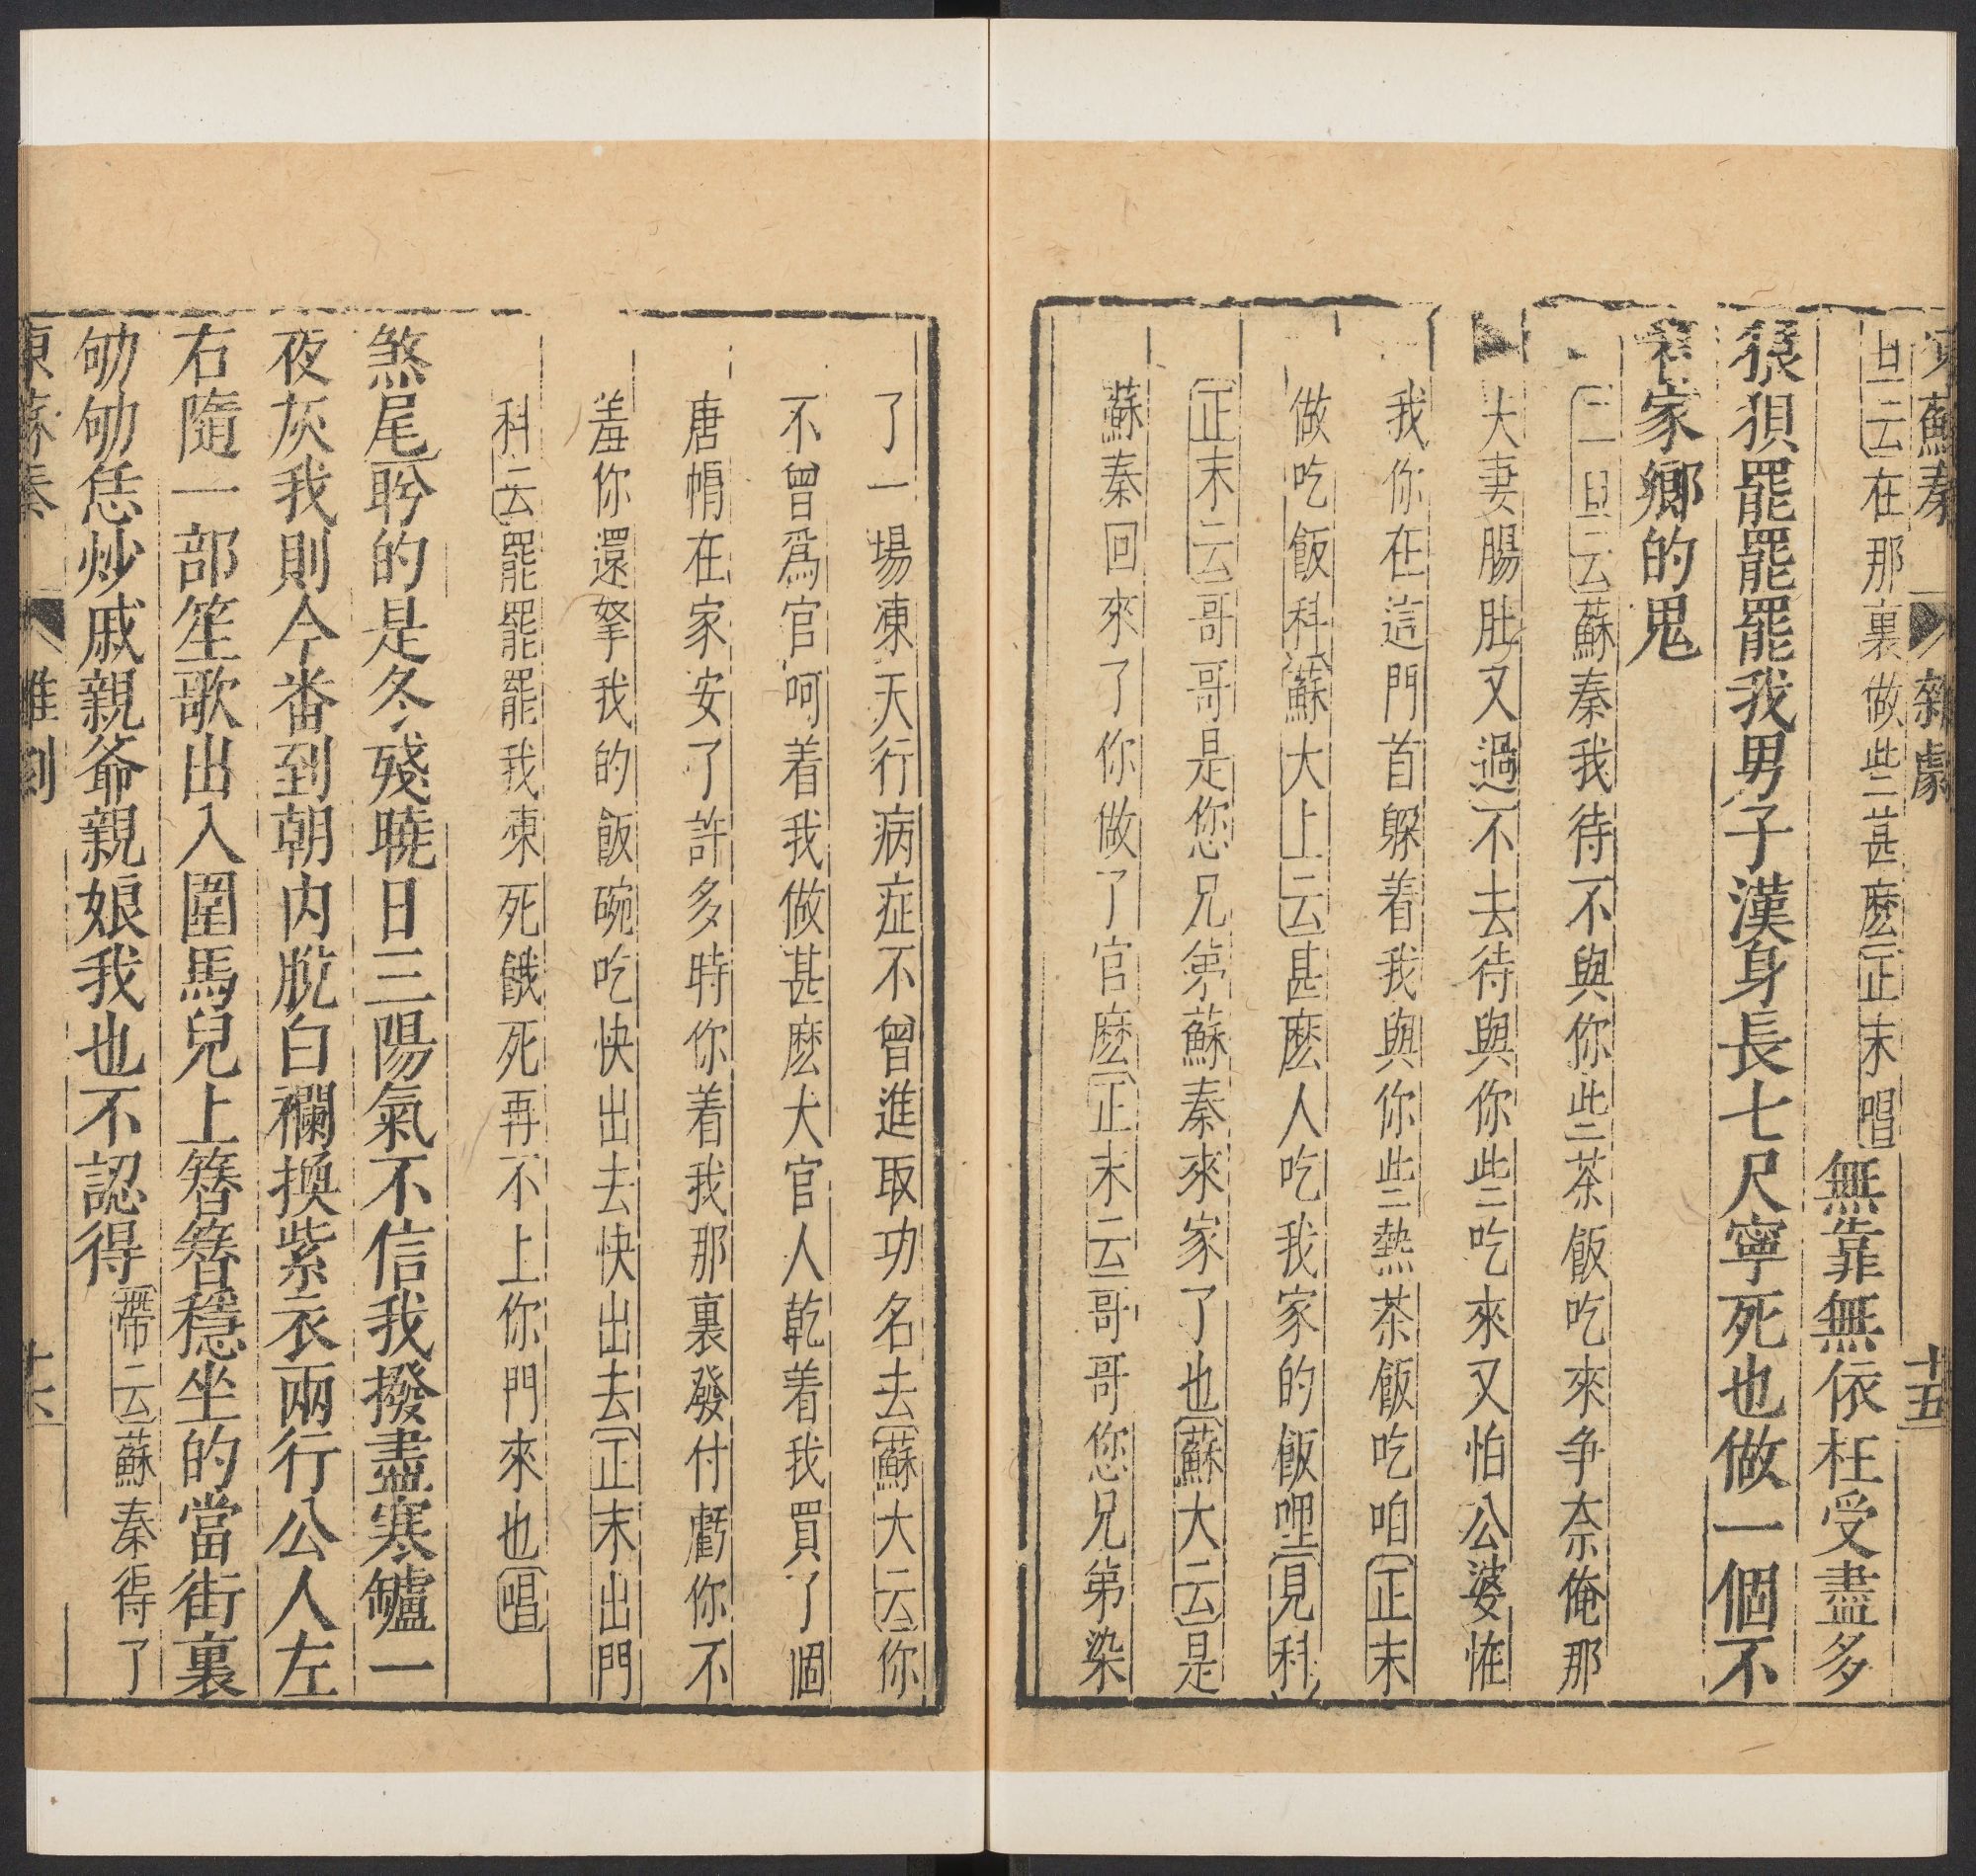 蘇秦 雜劇 十五
旦云在那裏做些甚麽正末唱無靠無依枉受盡多
狼狽罷罷罷我男子漢身長七尺寧死也做一個不
家鄉的鬼
二旦云蘇秦我待不與你些茶飯吃來争奈俺那
大妻腸肚又過不去待與你些吃來又怕公婆怪
我你在這門首躲着我與你些熱茶飯吃咱正末
做吃飯科蘇大上云甚麽人吃我家的飯哩見科
正末云哥哥是您兄弟蘇秦來家了也蘇大云是
蘇秦回來了你做了官麽正末云哥哥您兄弟染
了一場凍天行病症不曾進取功名去蘇大云你
不曾爲官呵着我做甚麽大官人乾着我買了個
唐帽在家安了許多時你着我那裏發付虧你不
羞你還拏我的飯碗吃快出去快出去正末出門
科云罷罷罷我凍死餓死再不上你門來也唱
煞尾聆的是冬殘曉日三陽氣不信我撥盡寒罏一
夜灰我則今番到朝内脫白襴換紫衣兩行公人左
右隨一部笙歌出入圍馬兒上簪簪穩坐的當街裏
劬劬恁炒戚親爺親娘我也不認得帶云蘇秦得了
凍蘇秦